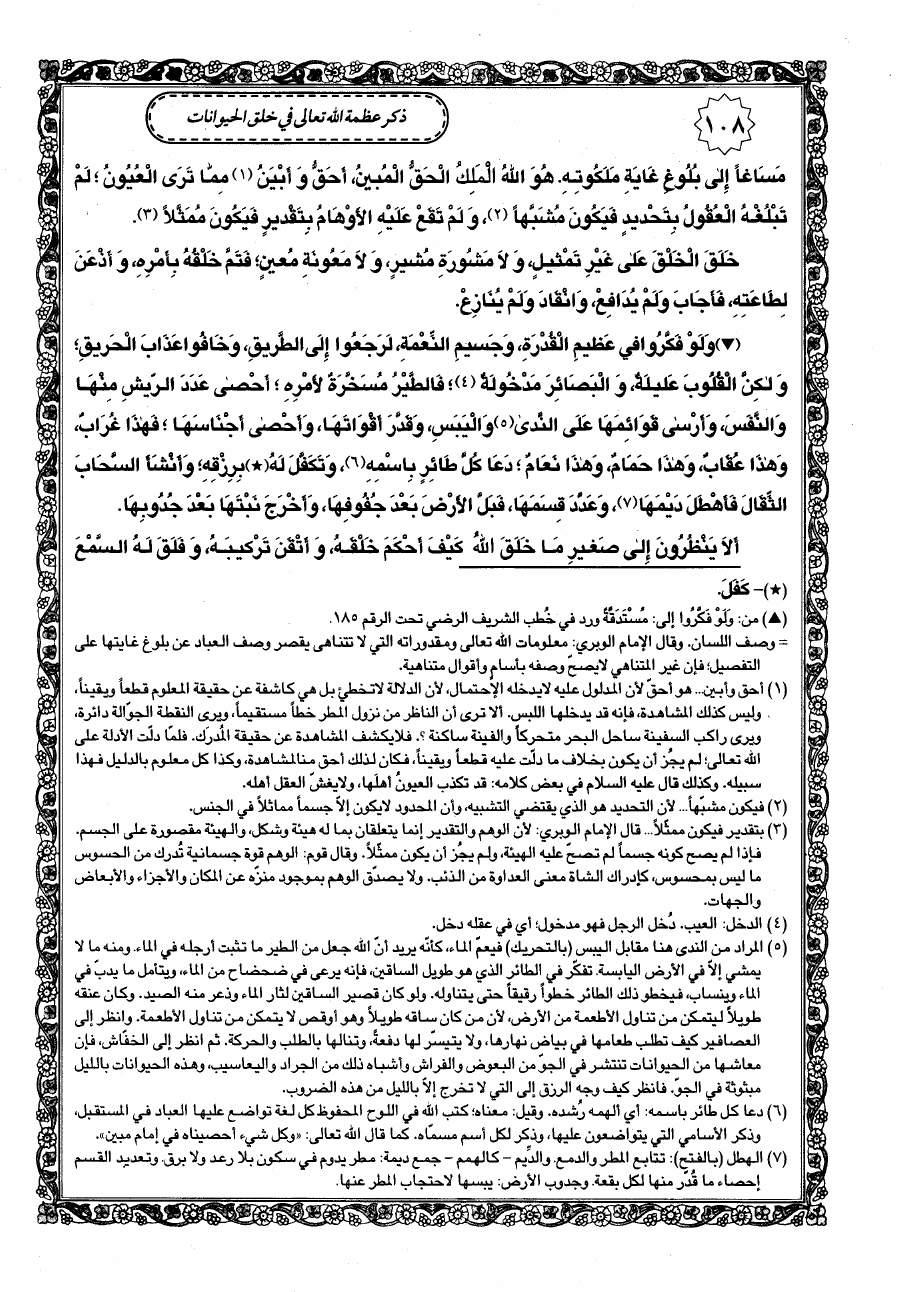 ١٠٨
ذكر عظمة الله تعالى في خلق الحيوانات
مَسَاغاً إِلى بُلُوغِ غايَةِ مَلَكُوتِهِ. هُوَ اللهُ الْمَلِكُ الْحَقُّ الْمُبينُ، أَحَقُّ وَ أَبْيَنُ (١) مِمَّا تَرَى الْعُيُونُ؛ لَمْ
تَبْلُغْهُ الْعُقُولُ بِتَحْديدٍ فَيَكُونَ مُشَبَّهاً (٢)، وَ لَمْ تَقَعْ عَلَيْهِ الأَوْهَامُ بِتَقْديرٍ فَيَكُونَ مُمَثَّلاً (٣).
خَلَقَ الْخَلْقَ عَلى غَيْرِ تَمْثيلٍ، وَ لاَ مَشُورَةِ مُشيرٍ، وَ لاَ مَعُونَةِ مُعينٍ؛ فَتَمَّ خَلْقُهُ بِأَمْرِهِ، وَ أَذْعَنَ
لِطَاعَتِهِ، فَأَجَابَ وَلَمْ يُدَافِعْ، وَانْقَادَ وَلَمْ يُنَازِعْ.
(▼)وَلَوْ فَكَّرُوا في عَظيمِ الْقُدْرَةِ، وَجَسيمِ النِّعْمَةِ، لَرَجَعُوا إِلَى الطَّريقِ، وَخَافُوا عَذَابَ الْحَريقِ؛
وَ لكِنَّ الْقُلُوبَ عَليلَةٌ، وَ الْبَصَائِرَ مَدْخُولَةٌ (٤)؛ فَالطَّيْرُ مُسَخَّرَةٌ لأَمْرِهِ؛ أَحْصى عَدَدَ الرّيشِ مِنْهَا
وَالنَّفَسِ، وَأَرْسى قَوَائِمَهَا عَلَى النَّدى(٥)وَالْيَبَسِ، وَقَدَّرَ أَقْوَاتَهَا، وَأَحْصى أَجْنَاسَهَا؛ فَهذَا غُرَابٌ،
وَهذَا عُقَابٌ، وَهذَا حَمَامٌ، وَهذَا نَعَامٌ؛ دَعَا كُلَّ طَائِرٍ بِاسْمِهِ(٦)، وَتَكَفَّلَ لَهُ(★)بِرِزْقِهِ؛ وَأَنْشَأَ السَّحَابَ
الثِّقَالَ فَأَهْطَلَ دِيَمَهَا(٧)، وَعَدَّدَ قِسَمَهَا، فَبَلَّ الأَرْضَ بَعْدَ جُفُوفِهَا، وَأَخْرَجَ نَبْتَهَا بَعْدَ جُدُوبِهَا.
أَلاَ يَنْظُرُونَ إِلى صَغيرِ مَا خَلَقَ اللهُ كَيْفَ أَحْكَمَ خَلْقَهُ، وَ أَتْقَنَ تَرْكيبَهُ، وَ فَلَقَ لَهُ السَّمْعَ
(★)– كَفَلَ.
(▲) من: وَلَوْ فَكَّرُوا إلى: مُسْتَدَقَّةً ورد في خُطب الشريف الرضي تحت الرقم ١٨٥.
= وصف اللسان. وقال الإمام الوبري: معلومات الله تعالى ومقدوراته التي لا تتناهى يقصر وصف العباد عن بلوغ غايتها على
التفصيل؛ فإن غير المتناهي لايصحّ وصفه بأسام وأقوال متناهية.
(١) أحق وأبين... هو أحقّ لأن المدلول عليه لايدخله الإحتمال، لأن الدلالة لاتخطئ بل هي كاشفة عن حقيقة المعلوم قطعاً ويقيناً،
وليس كذلك المشاهدة، فإنه قد يدخلها اللبس. ألا ترى أن الناظر من نزول المطر خطاً مستقيماً، ويرى النقطة الجوّالة دائرة،
ويرى راكب السفينة ساحل البحر متحركاً والفينة ساكنة ؟. فلايكشف المشاهدة عن حقيقة المُدرَك. فلمّا دلّت الأدلة على
الله تعالى؛ لم يجُز أن يكون بخلاف ما دلّت عليه قطعاً ويقيناً، فكان لذلك أحق من المشاهدة، وكذا كل معلوم بالدليل فهذا
سبيله. وكذلك قال عليه السلام في بعض كلامه: قد تكذب العيونُ أهلَها، ولايغشّ العقل أهله.
(٢) فيكون مشبّهاً... لأن التحديد هو الذي يقتضي التشبيه، وأن المحدود لايكون إلاّ جسماً مماثلاً في الجنس.
(٣) بتقدير فيكون ممثّلاً... قال الإمام الوبري: لأن الوهم والتقدير إنما يتعلقان بما له هيئة وشكل، والهيئة مقصورة على الجسم.
فإذا لم يصح كونه جسماً لم تصحّ عليه الهيئة، ولم يجُز أن يكون ممثّلاً. وقال قوم: الوهم قوة جسمانية تُدرك من الحسوس
ما ليس بمحسوس، كإدراك الشاة معنى العداوة من الذئب. ولا يصدّق الوهم بموجود منزّه عن المكان والأجزاء والأبعاض
والجهات.
(٤) الدخل: العيب. دُخل الرجل فهو مدخول؛ أي في عقله دخل.
(٥) المراد من الندى هنا مقابل اليبس (بالتحريك) فيعمّ الماء، كأنّه يريد أنّ الله جعل من الطير ما تثبت أرجله في الماء. ومنه ما لا
يمشي إلاّ في الأرض اليابسة. تفكّر في الطائر الذي هو طويل الساقين، فإنه يرعى في ضحضاح من الماء، ويتأمل ما يدبّ في
الماء وينساب، فيخطو ذلك الطائر خطواً رقيقاً حتى يتناوله. ولو كان قصير الساقين لثار الماء وذعر منه الصيد. وكان عنقه
طويلاً ليتمكن من تناول الأطعمة من الأرض، لأن من كان ساقه طويلاً وهو أوقص لا يتمكن من تناول الأطعمة. وانظر إلى
العصافير كيف تطلب طعامها في بياض نهارها، ولا يتيسّر لها دفعة، وتنالها بالطلب والحركة. ثم انظر إلى الخفّاش، فإن
معاشها من الحيوانات تنتشر في الجوّ من البعوض والفراش وأشباه ذلك من الجراد واليعاسيب، وهذه الحيوانات بالليل
مبثوثة في الجوّ. فانظر كيف وجه الرزق إلى التي لا تخرج إلاّ بالليل من هذه الضروب.
(٦) دعا كل طائر باسمه: أي ألهمه رُشده. وقيل: معناه؛ كتب الله في اللوح المحفوظ كل لغة تواضع عليها العباد في المستقبل،
وذكر الأسامي التي يتواضعون عليها، وذكر لكل أسم مسمّاه. كما قال الله تعالى: «وكل شيء أحصيناه في إمام مبين».
(٧) الهطل (بالفتح): تتابع المطر والدمع. والدِّيم – كالهمم – جمع ديمة: مطر يدوم في سكون بلا رعد ولا برق. وتعديد القسم
إحصاء ما قُدّر منها لكل بقعة. وجدوب الأرض: يبسها لاحتجاب المطر عنها.